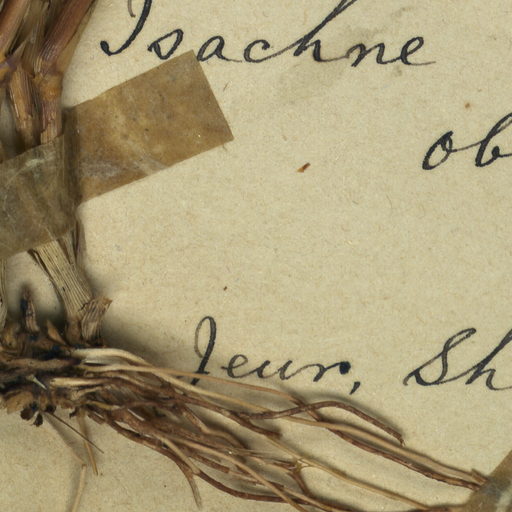 Isachne
ob
Jeur, Sh